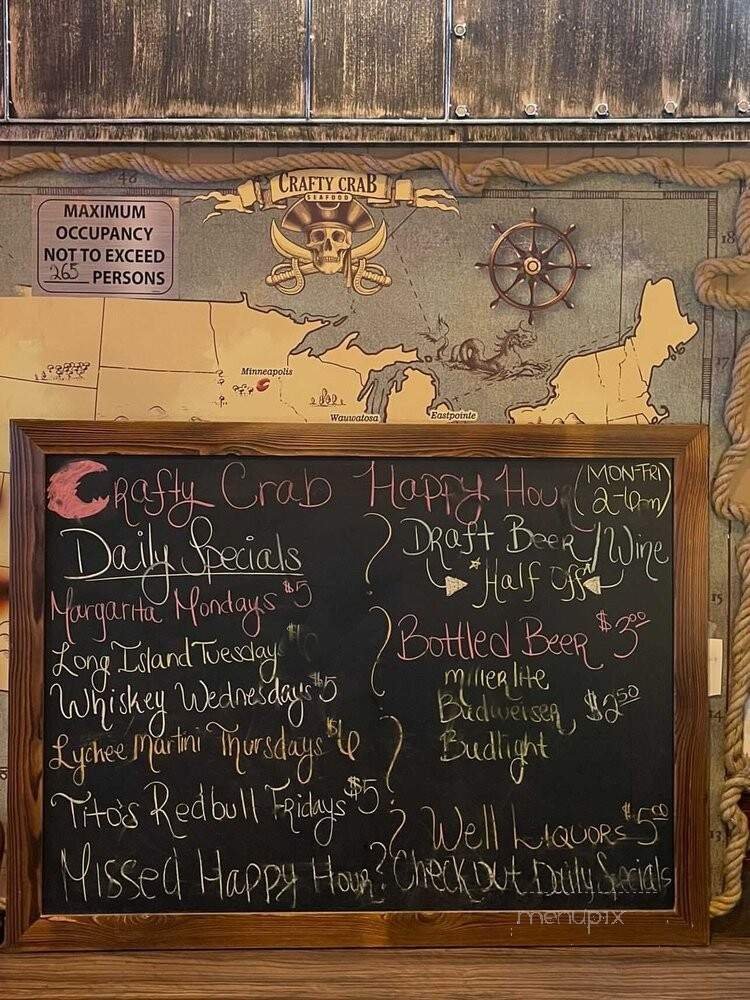 CRAFTY CRAB
SEAFOOD
MAXIMUM
OCCUPANCY
NOT TO EXCEED
265 PERSONS
Minneapolis
Wauwatosa
Eastpointe
Crafty Crab Happy Hour (MON-FRI
2-6pm)
Daily Specials
Margarita Mondays $5
Long Island Tuesday
Whiskey Wednesdays $5
Lychee Martini Thursdays $6
Tito's Redbull Fridays $5
Draft Beer/Wine
*Half Off*
Bottled Beer $3.00
Miller lite
Budweiser $2.50
Budlight
Well Liquors $5.00
Missed Happy Hour? Check out Daily Specials
menupix